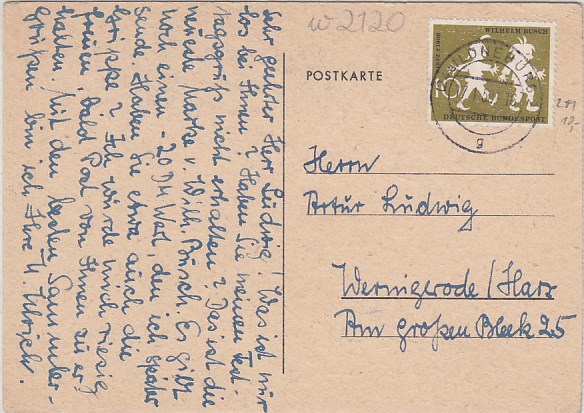 w 2120
POSTKARTE
WILHELM BUSCH
10
DEUTSCHE BUNDESPOST
g
Herrn
Artur Ludwig
Wernigerode/Harz
Am großen Bleek 25
Sehr geehrter Herr Ludwig! Was ist nur
los bei Ihnen? Haben Sie meinen Fest-
tagsgruß nicht erhalten? Das ist die
neueste Marke v. Wilh. Busch. Es gibt
noch einen -20 DM Wert, den ich später
sende. Haben Sie etwa auch die
Grippe? Ich würde mich riesig
freuen, bald Post von Ihnen zu er-
halten. Mit den besten Sammler-
grüßen bin ich Ihre H. Ullrich.